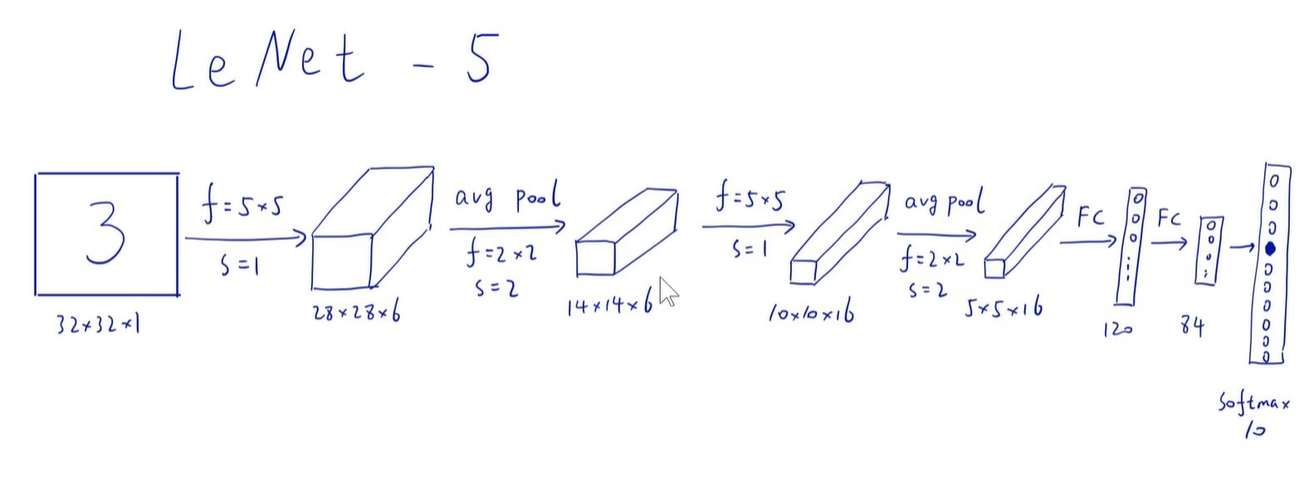 LeNet - 5
3
32×32×1
f=5×5
s=1
28×28×6
avg pool
f=2×2
s=2
14×14×6
f=5×5
s=1
10×10×16
avg pool
f=2×2
s=2
5×5×16
FC
120
FC
84
Softmax
10